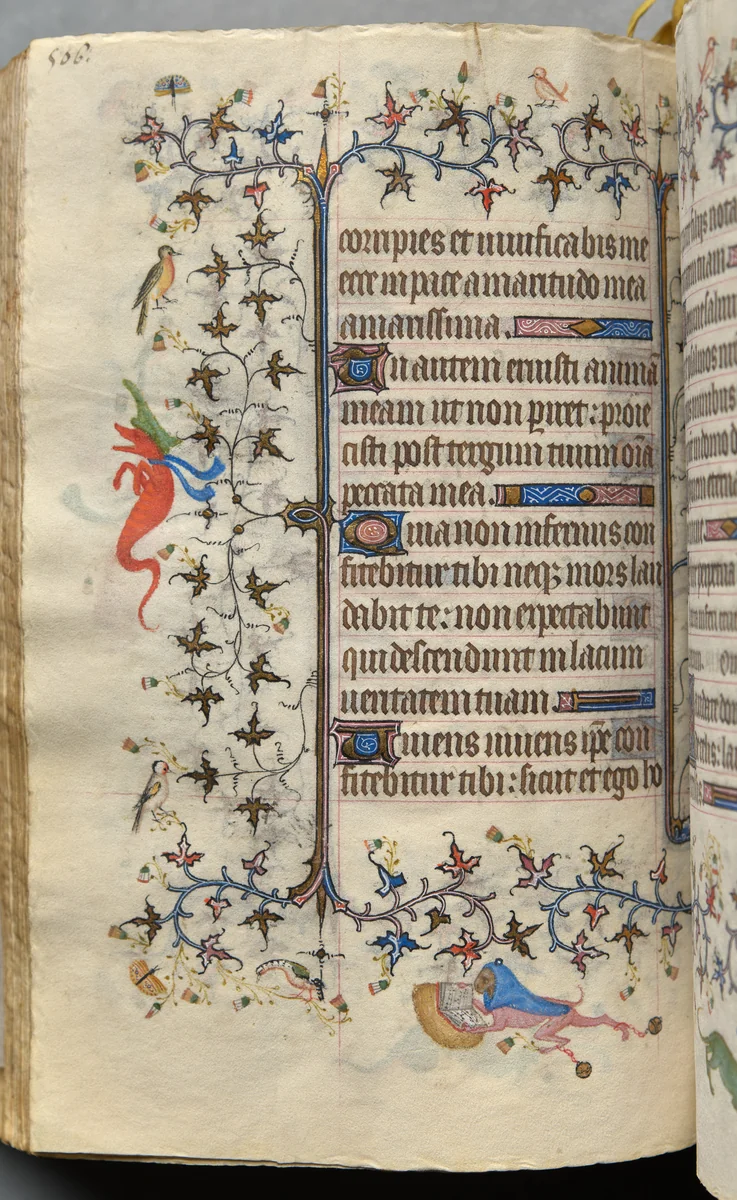 506.
corripies et vivificabis me
ecce in pace amaritudo mea
amarissima.
Tu autem eruisti animā
meam ut non piret: proie
cisti post tergum tuum oīa
peccata mea.
Quia non infernus con
fitebitur tibi neqꝫ mors lau
dabit te: non expectabunt
qui descendunt in lacum
veritatem tuam.
Vivens vivens ip̄e con
fitebitur tibi: sicut et ego ho